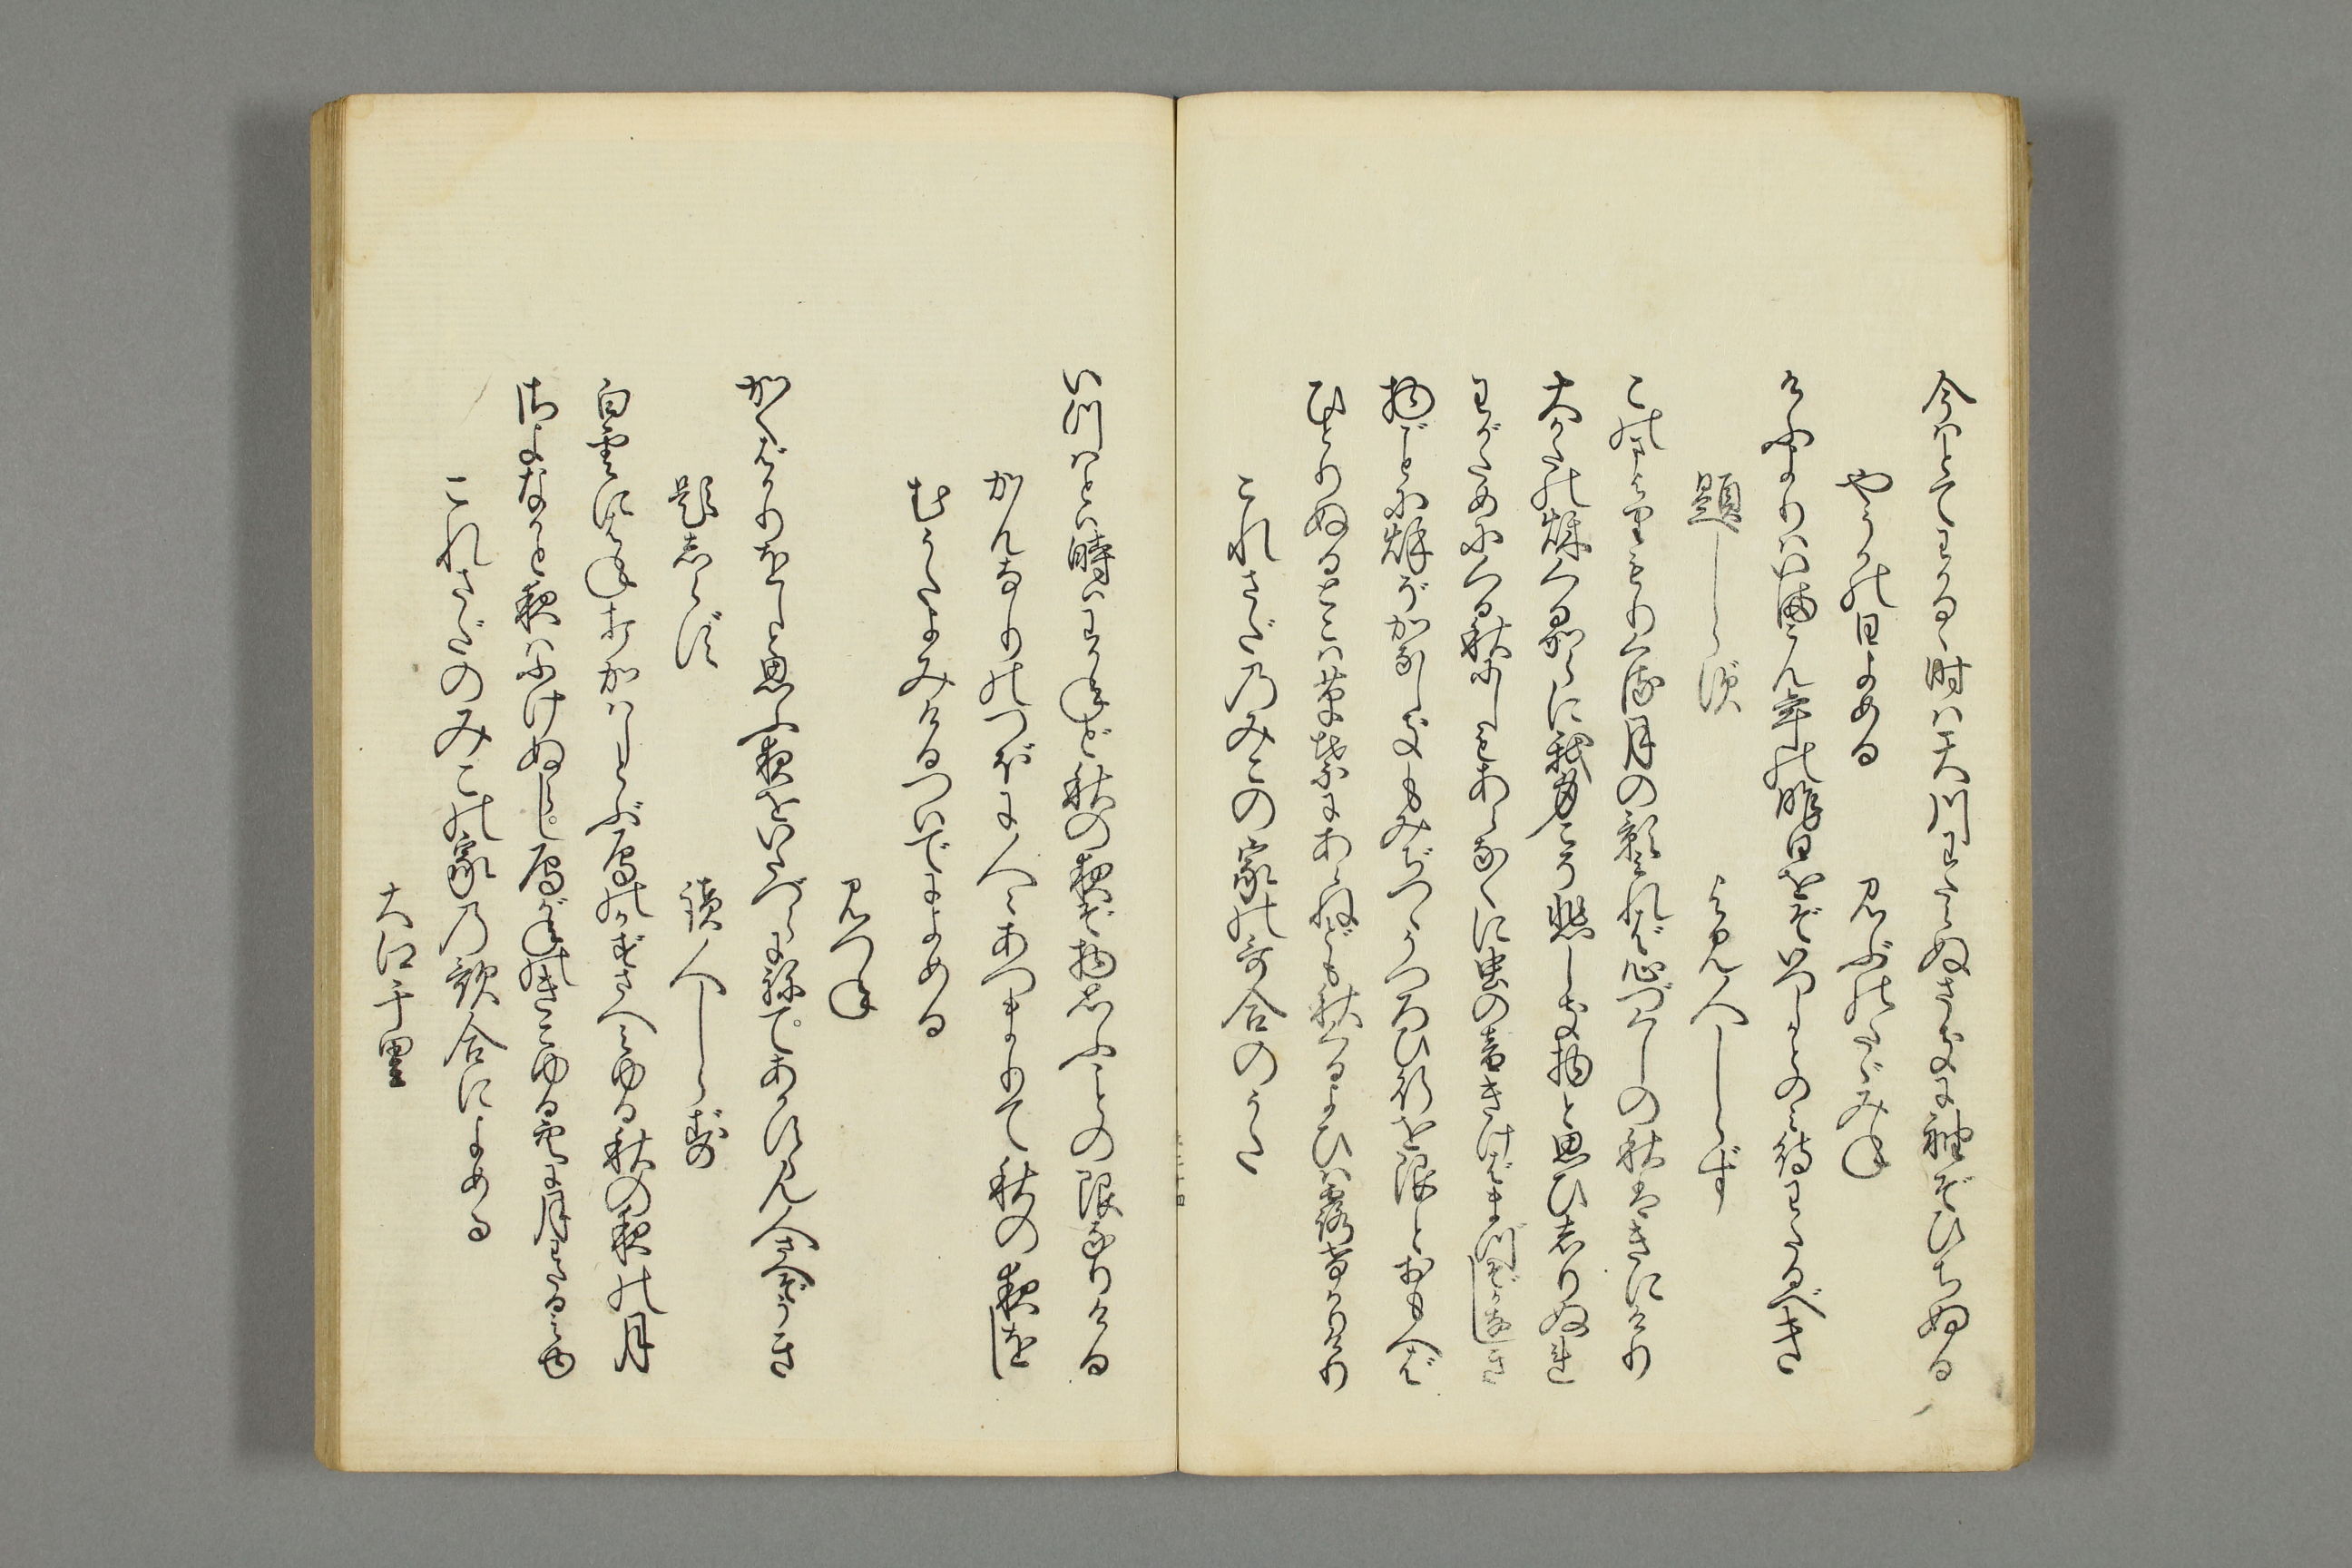 今はとてわかるゝ時は天川わたらぬさきに袖ぞひちぬる
やうかの日よめる　みぶのたゞみね
けふよりは今こん年の昨日をぞいつしかとのみ待わたるべき
題しらず　よみ人しらず
この間よりもりくる月の影みれば心づくしの秋はきにけり
大かたの秋くるからに我身こそ悲しき物と思ひしりぬれ
わがために くる秋にしもあらなくに虫の音きけばまづぞかなしき
物ごとに秋ぞかなしきもみぢつゝうつろひ行を限とおもへば
ひとりぬるとこは草葉にあらねども秋くるよひは露けかりけり
これさだ乃みこの家の哥合のうた
いつはとは時はわかねど秋の夜ぞ物おもふことの限なりける
かんなりのつぼに人々あつまりて秋の夜をし
むうたよみけるついでによめる
みつね
かくばかりをしと思ふ夜をいたづらに寝てあかす覧人さへぞうき
題しらず　讀人しらず
白雲にはねうちかはしとぶ鴈のかずさへみゆる秋の夜の月
さよなかと夜はふけぬらし鴈がねのきこゆる空に月わたるみゆ
これさだのみこの家乃歌合によめる
大江千里